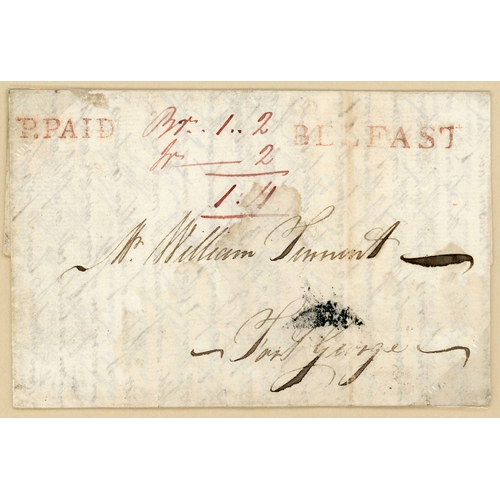 P.PAID Br. 1..2 BELFAST
Ir — 2
1:4
Mr. William Tennent
Fort George